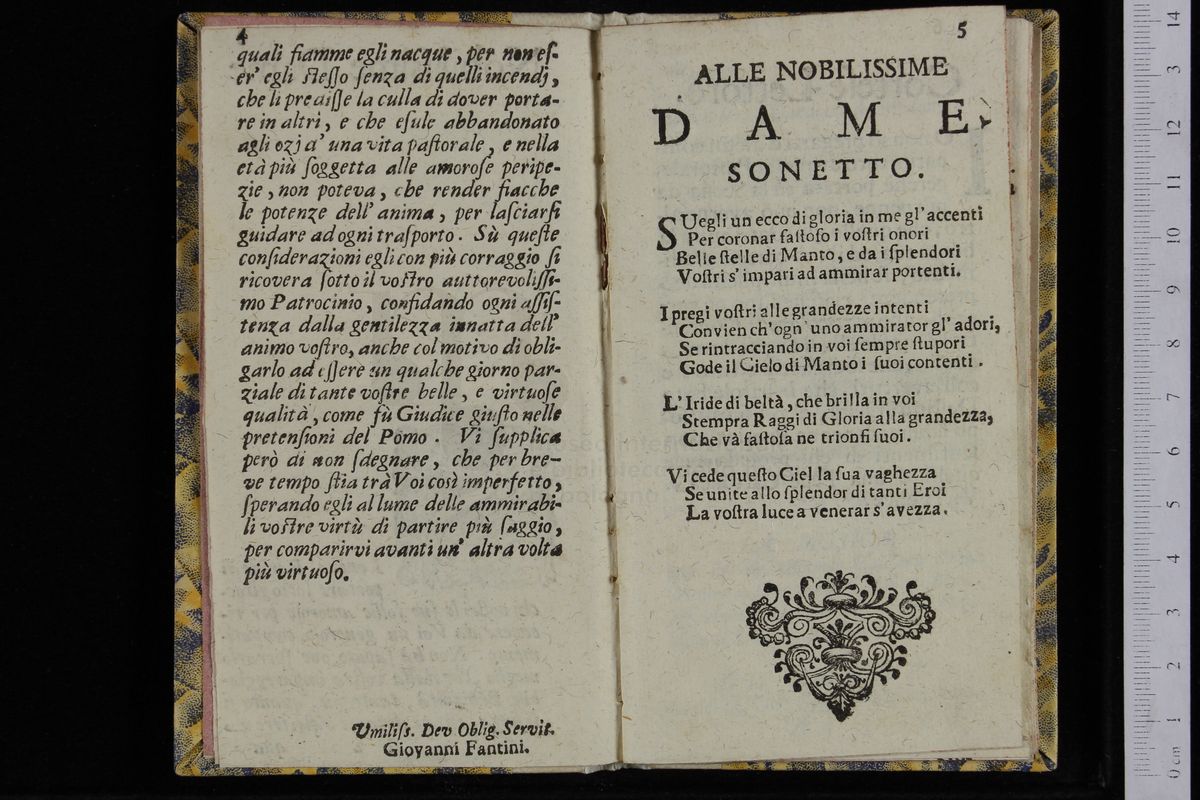 4
quali fiamme egli nacque, per non eſ-
ser' egli ſteſſo ſenza di quelli incendj,
che li prediſſe la culla di dover porta-
re in altri, e che eſule abbandonato
agli ozj d' una vita paſtorale, e nella
età più ſoggetta alle amoroſe peripe-
zie, non poteva, che render fiacche
le potenze dell' anima, per laſciarſi
guidare ad ogni traſporto. Sù queſte
conſiderazioni egli con più corraggio ſi
ricovera ſotto il voſtro auttorevoliſſi-
mo Patrocinio, confidando ogni aſſiſ-
tenza dalla gentilezza innatta dell'
animo voſtro, anche col motivo di obli-
garlo ad eſſere un qualche giorno par-
ziale di tante voſtre belle, e virtuoſe
qualità, come fù Giudice giuſto nelle
pretenſioni del Pomo. Vi ſupplica
però di non ſdegnare, che per bre-
ve tempo ſtia trà Voi così imperfetto,
ſperando egli al lume delle ammirabi-
li voſtre virtù di partire più ſaggio,
per comparirvi avanti un' altra volta
più virtuoſo.
Umiliſs. Dev Oblig. Servit.
Giovanni Fantini.
5
ALLE NOBILISSIME
DAME
SONETTO.
SUegli un ecco di gloria in me gl' accenti
Per coronar faſtoſo i voſtri onori
Belle ſtelle di Manto, e da i ſplendori
Voſtri s' impari ad ammirar portenti.
I pregi voſtri alle grandezze intenti
Convien ch' ogn' uno ammirator gl' adori,
Se rintracciando in voi ſempre ſtupori
Gode il Cielo di Manto i ſuoi contenti.
L' Iride di beltà, che brilla in voi
Stempra Raggi di Gloria alla grandezza,
Che và faſtoſa ne trionfi ſuoi.
Vi cede queſto Ciel la ſua vaghezza
Se unite allo ſplendor di tanti Eroi
La voſtra luce a venerar s' avezza.
14
13
12
11
10
9
8
7
6
5
4
3
2
1
0 cm